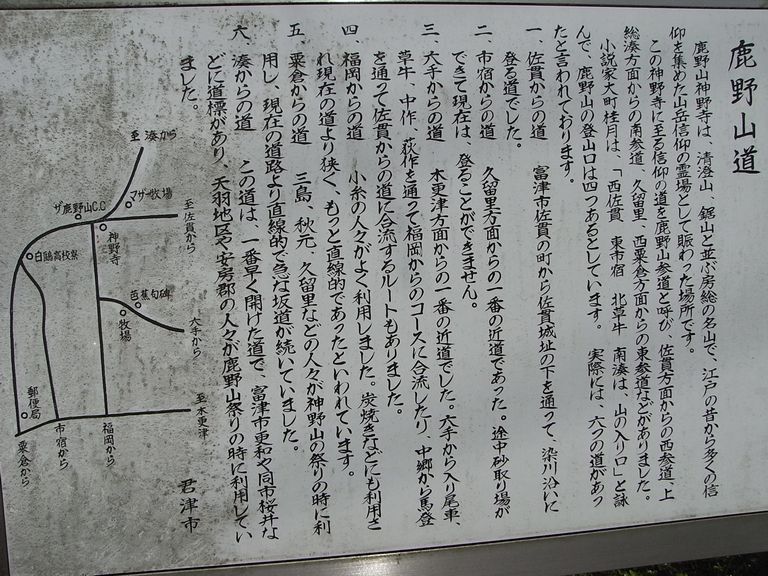 鹿野山道
鹿野山神野寺は、清澄山、鋸山と並ぶ房総の名山で、江戸の昔から多くの信
仰を集めた山岳信仰の霊場として賑わった場所です。
この神野寺に至る信仰の道を鹿野山参道と呼び　佐貫方面からの西参道、上
総湊方面からの南参道、久留里、西粟倉方面からの東参道などがありました。
小説家大町桂月は、「西佐貫　東市宿　北草牛　南湊は、山の入り口」と詠
んで、鹿野山の登山口は四つあるとしています。　実際には、六つの道があっ
たと言われております。
一、佐貫からの道　富津市佐貫の町から佐貫城址の下を通って、染川沿いに
登る道でした。
二、市宿からの道　久留里方面からの一番の近道であった。途中砂取り場が
できて現在は、登ることができません。
三、六手からの道　木更津方面からの一番の近道でした。六手から入り尾車、
草牛、中作、荻作を通って福岡からのコースに合流したり、中郷から馬登
を通って佐貫からの道に合流するルートもありました。
四、福岡からの道　小糸の人々がよく利用しました。炭焼きなどにも利用さ
れ現在の道より狭く、もっと直線的であったといわれています。
五、粟倉からの道　三島、秋元、久留里などの人々が神野山の祭りの時に利
用し、現在の道路より直線的で急な坂道が続いていました。
六、湊からの道　この道は、一番早く開けた道で、富津市更和や同市桜井な
どに道標があり、天羽地区や安房郡の人々が鹿野山祭りの時に利用してい
ました。
君津市
至湊から
マザー牧場
ザ鹿野山C.C
至佐貫から
神野寺
白鵬高校寮
芭蕉句碑
牧場
六手から
至木更津
郵便局
粟倉から
市宿から
福岡から